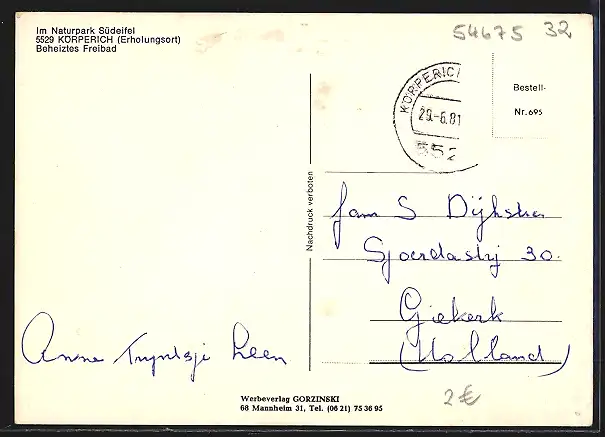 Im Naturpark Südeifel
5529 KÖRPERICH (Erholungsort)
Beheiztes Freibad
54675 32
KÖRPERICH
29.-6.81
552
Bestell-
Nr. 695
Nachdruck verboten
Fam S Dijkstra
Sjoerdastrj 30.
Giekerk
(Holland)
Anne Tryntsje Leen
Werbeverlag GORZINSKI
68 Mannheim 31, Tel. (06 21) 75 36 95
2 €